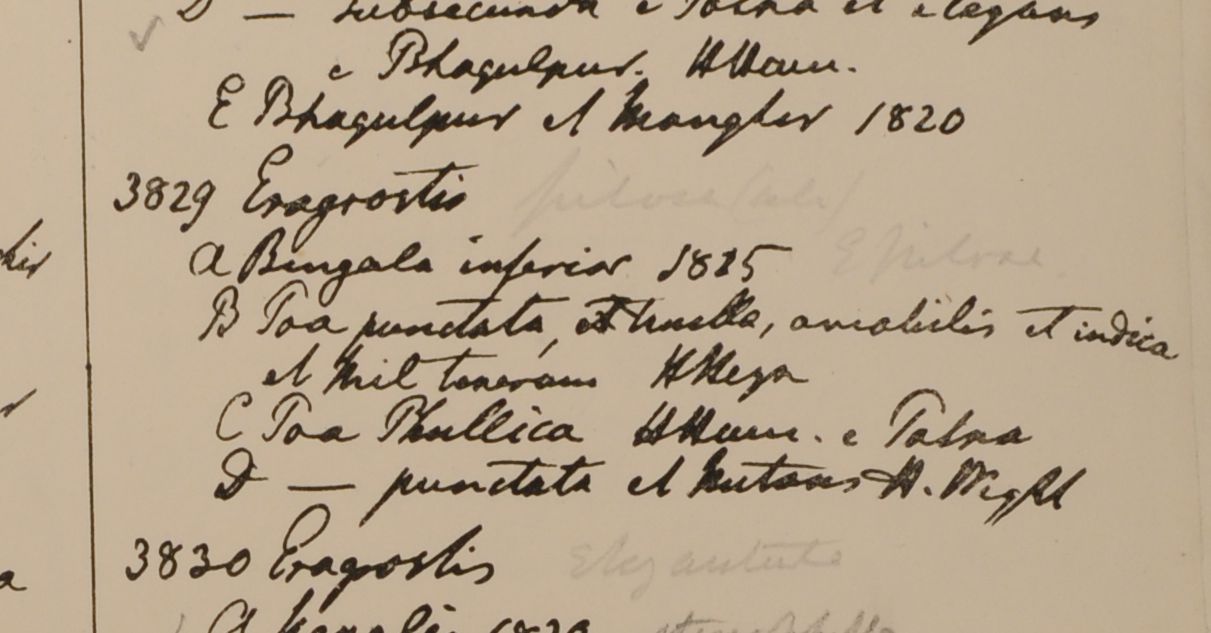 D — subsecunda e Patna et elegans
e Bhagulpur. HHam.
E Bhagulpur et Mongher 1820
3829 Eragrostis pilosa
a Bengala inferior 1825 E pilosa
B Poa punctata, et tenella, amabilis et indica
et Mil HHeyn
C Poa Phullica HHam. e Patna
D — punctata et nutans H. Wight
3830 Eragrostis